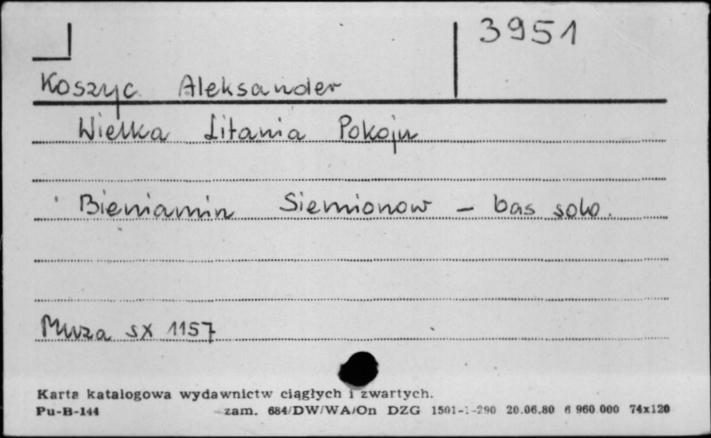 3951
Koszyc Aleksander
Wielka Litania Pokoju
Bieniamin Siemionow - bas solo.
Muza sx 1157
Karta katalogowa wydawnictw ciągłych i zwartych.
Pu-B-144 zam. 684/DW/WA/On DZG 1501-1-290 20.06.80 6 960 000 74x120